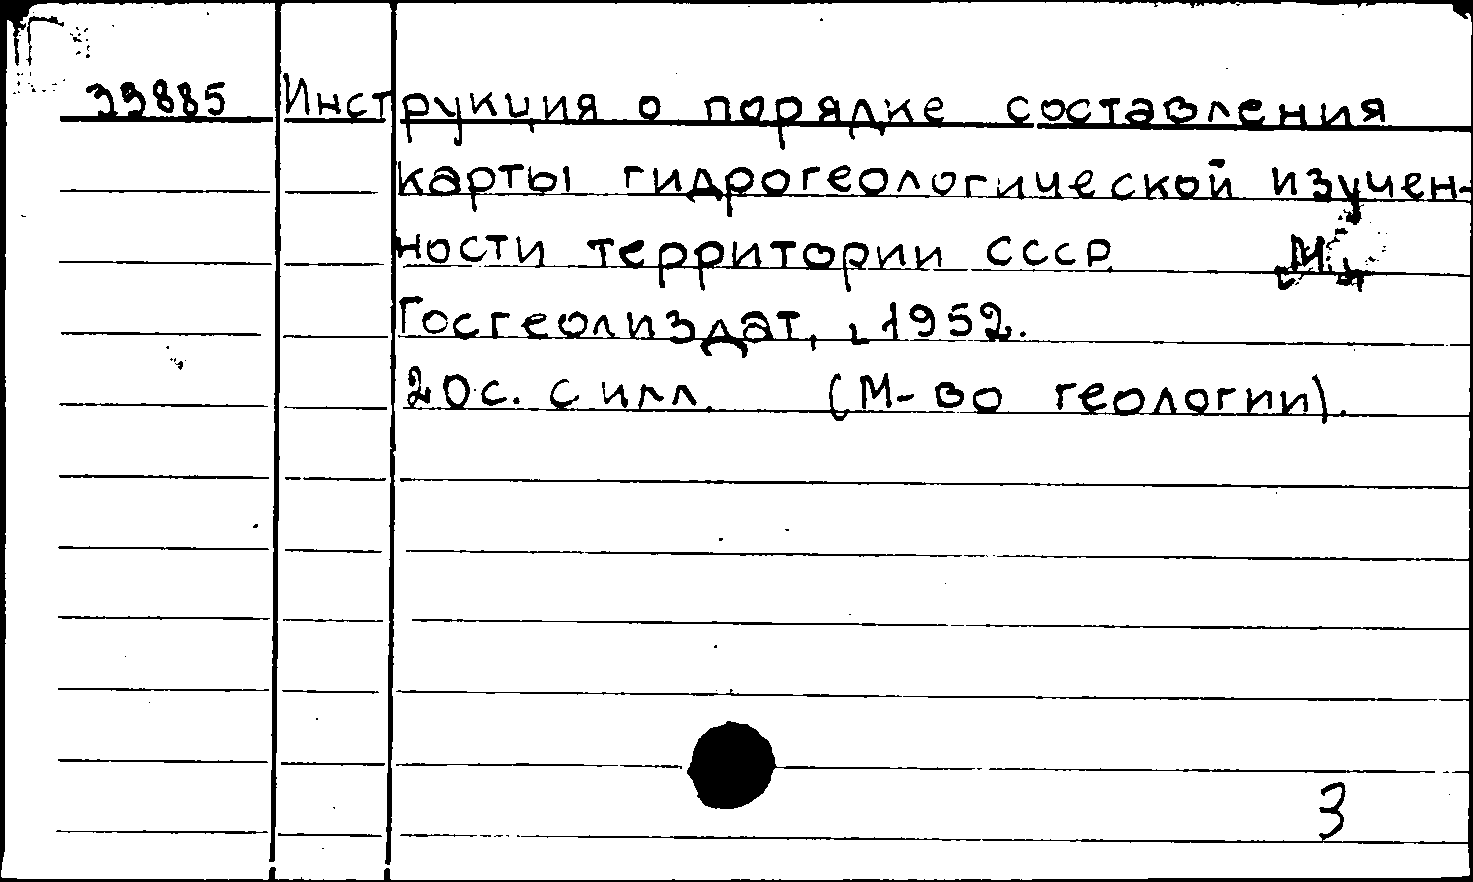 39885 Инструкция о порядке составления
карты гидрогеологической изучен-
ности территории СССР М.,
Госгеолиздат, 1952.
20с. с илл. (М-во геологии).
3